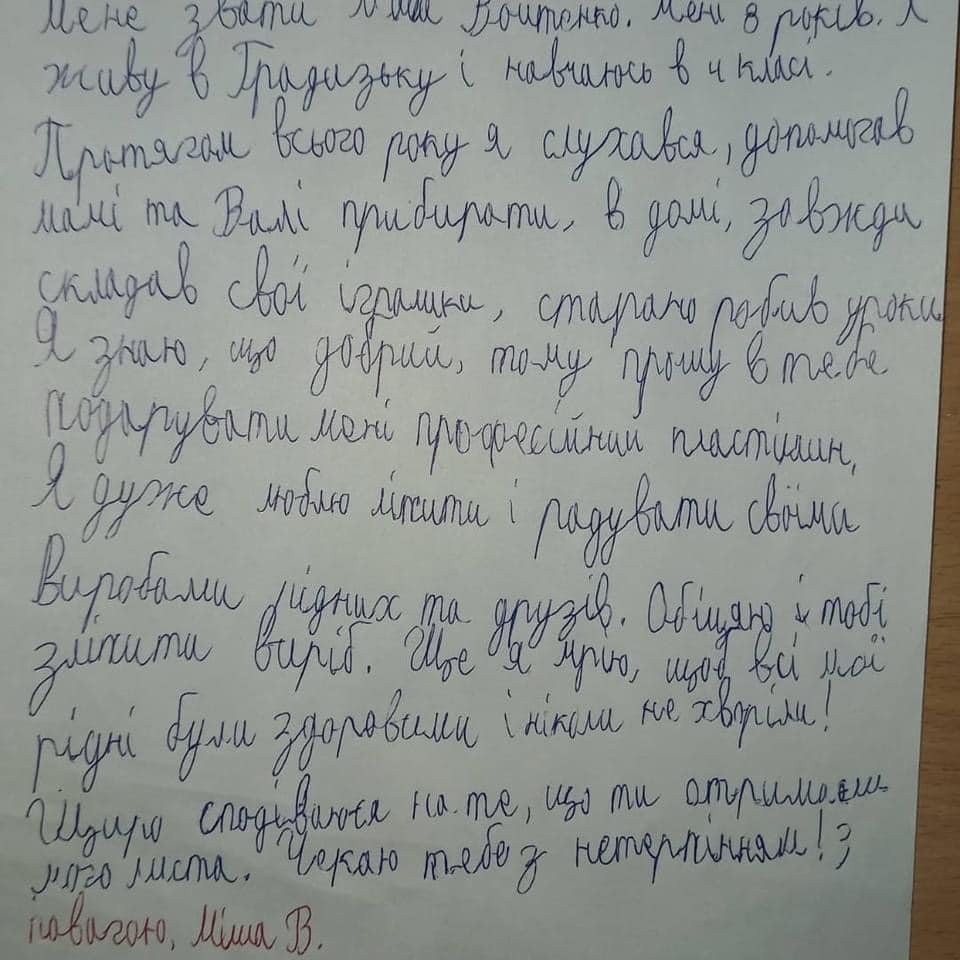 Мене звати Міша Войтенко. Мені 8 років. Я
живу в Градизьку і навчаюсь в 4 класі.
Протягом всього року я слухався, допомогав
мамі та Валі прибирати, в домі, завжди
складав свої іграшки, старано робив уроки
Я знаю, що добрий, тому прошу в тебе
подарувати мені професійний пластілин,
Я дуже люблю ліпити і радувати своїми
виробами рідних та друзів. Обіцяю і тобі
зліпити виріб. Ще я мрію, щоб всі мої
рідні були здоровими і ніколи не хворіли!
Щиро сподіваюся на те, що ти отримаєш
мого листа. Чекаю тебе з нетерпінням! З
повагою, Міша В.